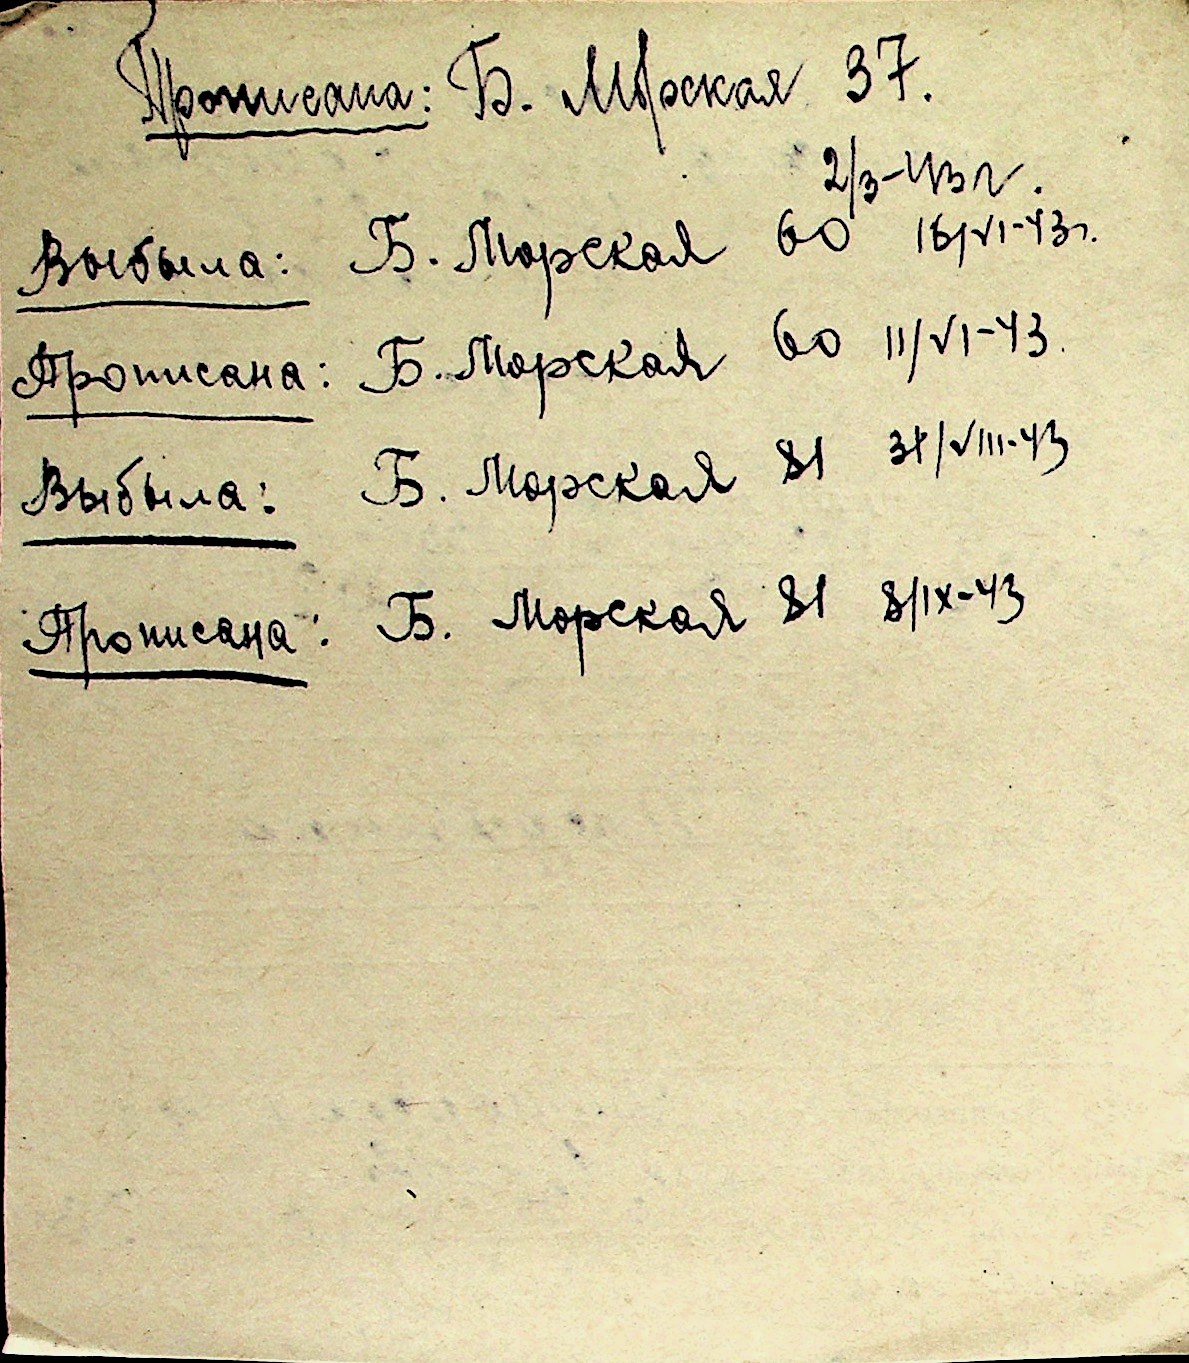 Прописана: Б. Морская 37.
2/3-43 г.
Выбыла: Б. Морская 60 16/VI-43г.
Прописана: Б. Морская 60 11/VI-43.
Выбыла: Б. Морская 81 31/VIII-43
Прописана: Б. Морская 81 8/IX-43